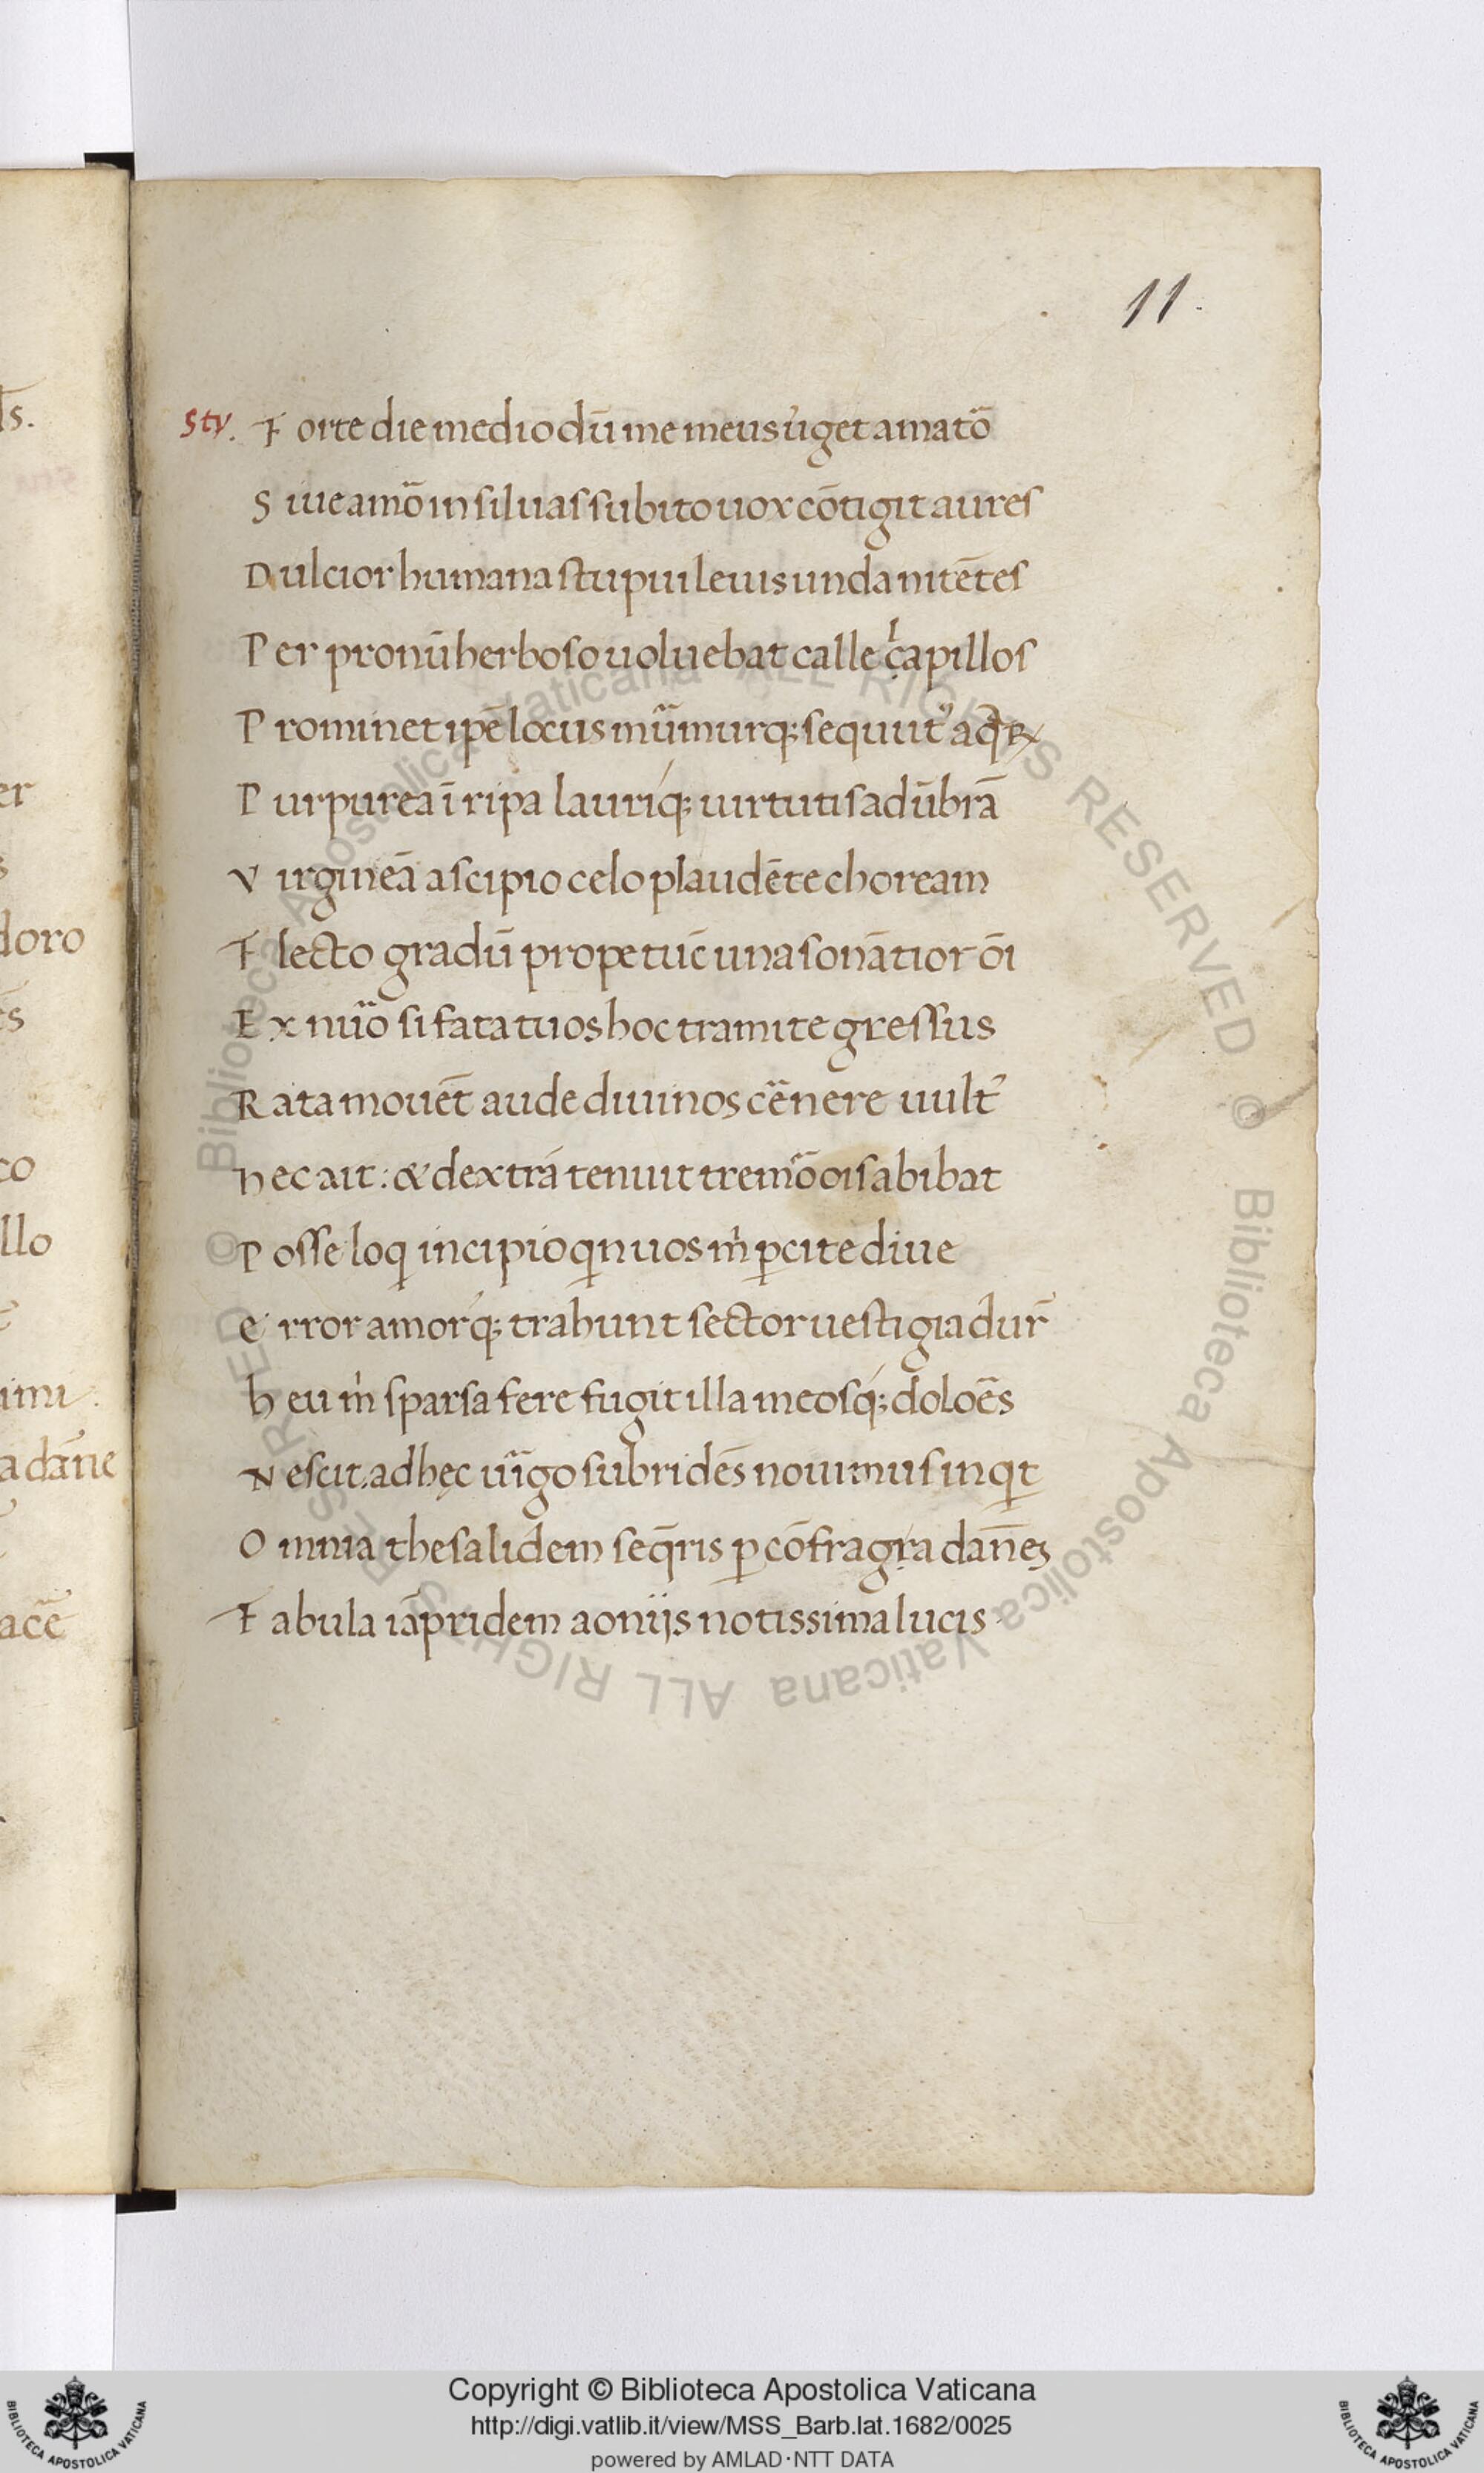 11.
Stv. F orte die medio dū me meus u᷑get amato᷑
S iue amo᷑ in siluas subito uox cōtigit aures
D ulcior humana stupui leuis unda nitētes
P er pronū herboso uoluebat calle capillos
P rominet ip̄e locus mu᷑murq; sequut᷑ aq̄ꝝ
P urpurea ī ripa lauriq; uirtutis adūbrā
V irgineā a scipio celo plaudēte choream
F lecto gradū prope tūc una sonātior ōi
E x nu᷑o si fata tuos hoc tramite gressus
R ata mouēt aude diuinos ce᷑nere uult᷒
h ec ait: & dextrā tenuit tremo᷑ oīs abibat
P osse loqi incipio qn uos m̍ ꝑcite diue
E rror amorq; trahunt sector uestigia dur̄
h eu m̍ sparsa fere fugit illa meosq; dolo᷑es
N escit. ad hęc ui᷑go subridēs nouimus inqt
O mnia thesalidem seq̄ris ꝑ cōfragra dan̄es
F abula iāpridem aonijs notissima lucis
ls.
er
s
doro
ēs
co
llo
imi.
a dan̄e
ace᷑
Copyright © Biblioteca Apostolica Vaticana
http://digi.vatlib.it/view/MSS_Barb.lat.1682/0025
powered by AMLAD·NTT DATA
BIBLIOTECA APOSTOLICA VATICANA
BIBLIOTECA APOSTOLICA VATICANA
© Biblioteca Apostolica Vaticana ALL RIGHTS RESERVED © Biblioteca Apostolica Vaticana ALL RIGHTS RESERVED